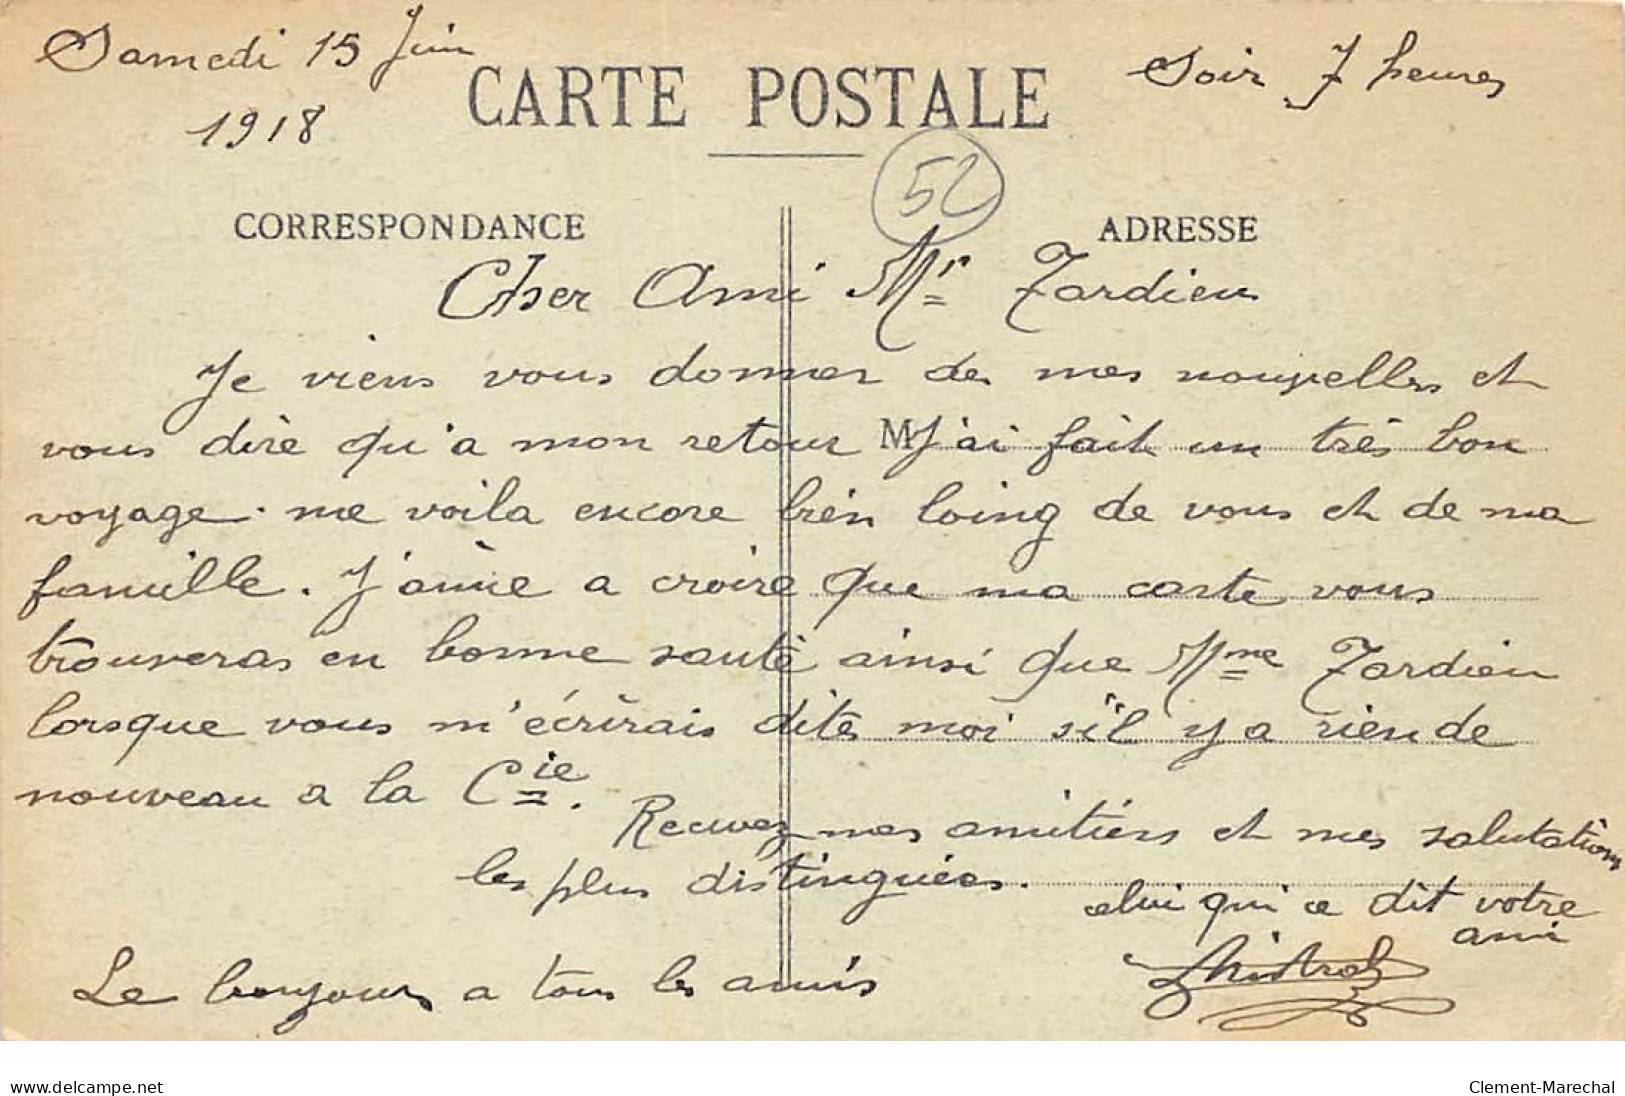 Samedi 15 Juin
1918
Soir 7 heures
CARTE POSTALE
52
CORRESPONDANCE
ADRESSE
Cher Ami Mr Tardieu
Je viens vous donner des mes nouvelles et
vous dire qu'a mon retour M J'ai fait un très bon
voyage. me voila encore bien loing de vous et de ma
famille. J'aime a croire que ma carte vous
trouveras en bonne santé ainsi que Mme Tardieu
lorsque vous m'écrirais dites moi s'il y a rien de
nouveau a la Cie.
Recevez mes amitiers et mes salutations
les plus distinguées.
celui qui ce dit votre
ami
Le bonjours a tous les amis
Mistral
www.delcampe.net
Clement-Marechal